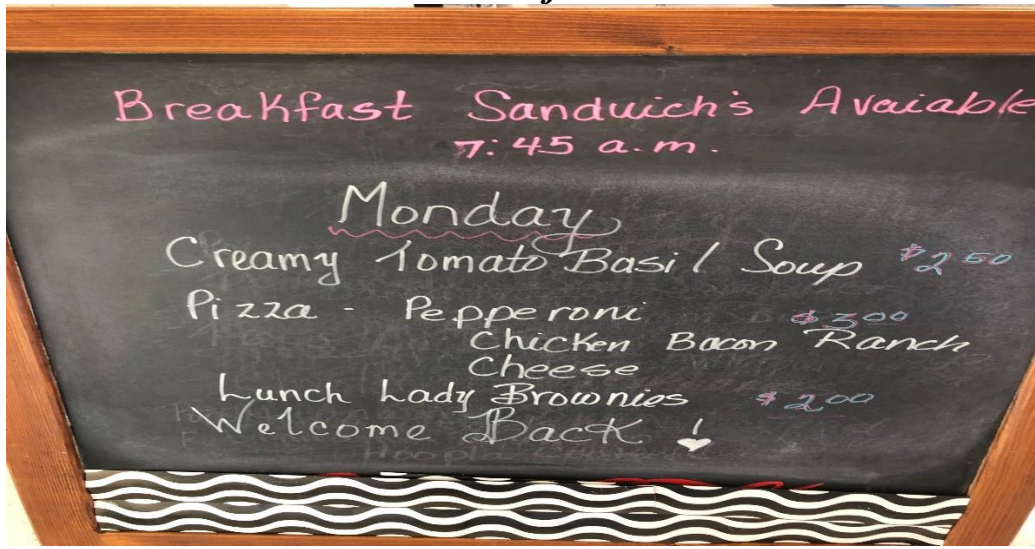 Breakfast Sandwich's Avaiable
7:45 a.m.
Monday
Creamy Tomato Basil Soup $2.50
Pizza - Pepperoni $3.00
Chicken Bacon Ranch
Cheese
Lunch Lady Brownies $2.00
Welcome Back !